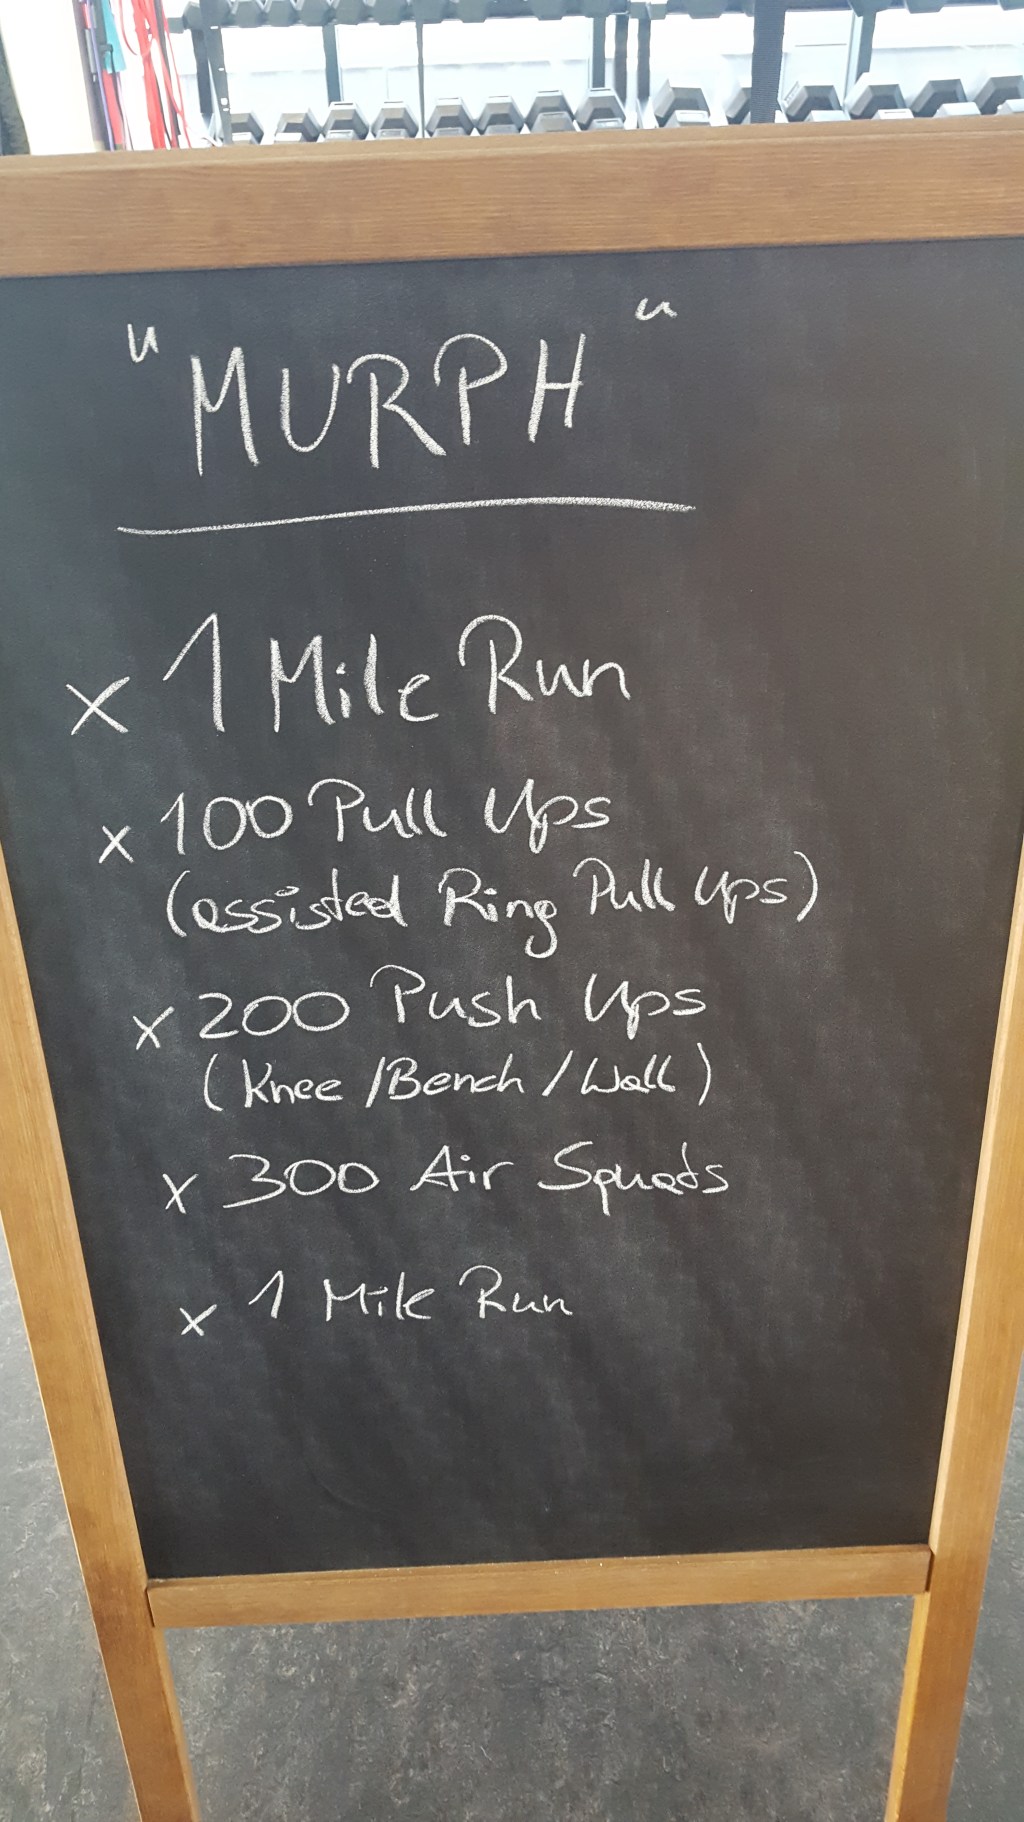 "MURPH"
x 1 Mile Run
x 100 Pull Ups
(assisted Ring Pull Ups)
x 200 Push Ups
(Knee /Bench / Wall)
x 300 Air Squats
x 1 Mile Run